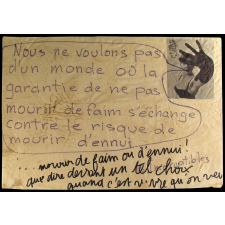 Nous ne voulons pas
d'un monde où la
garantie de ne pas
mourir de faim s'échange
contre le risque de
mourir d'ennui
...mourir de faim ou d'ennui!
que dire devant un tel choix
quand c'est vivre qu'on veut